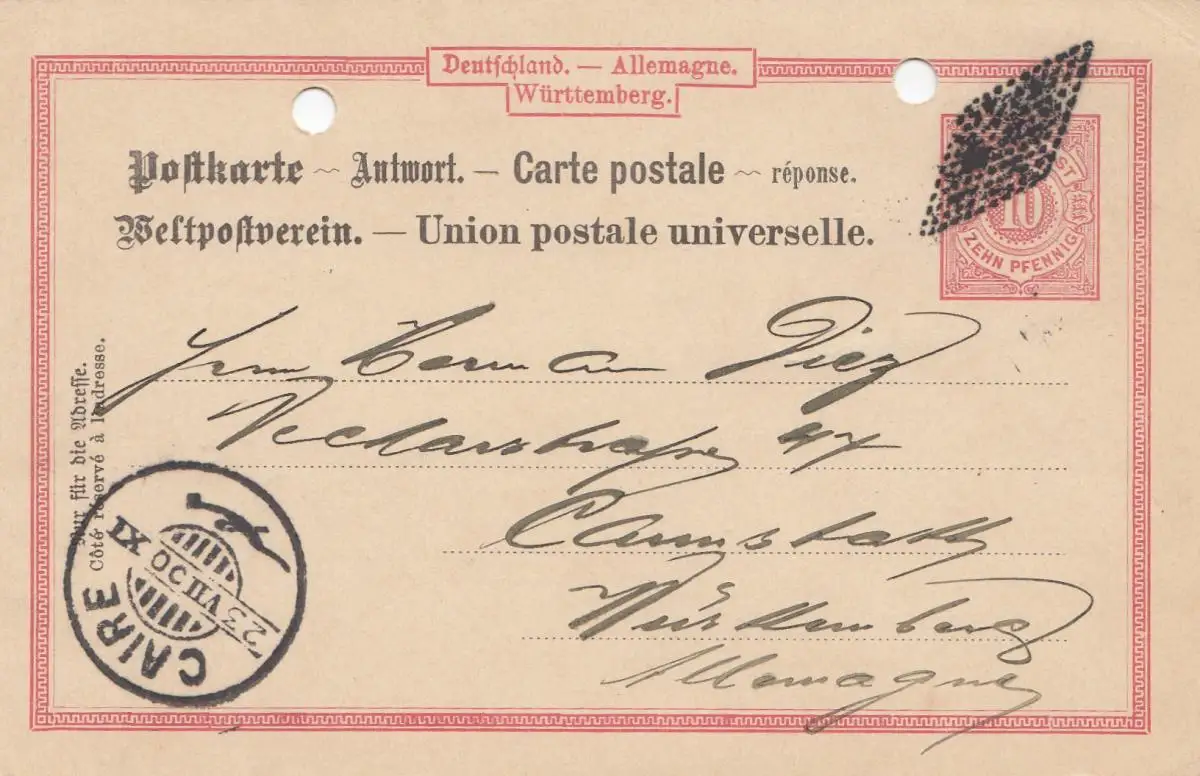 Deutschland. — Allemagne.
Württemberg.
Postkarte ~ Antwort. — Carte postale ~ réponse.
Weltpostverein. — Union postale universelle.
10
ZEHN PFENNIG
Nur für die Adresse.
Côté réservé à l'adresse.
Herman Diez
Neckarstraße 47
Cannstatt
Württemberg
Allemagne
CAIRE
23 VII 00 XI